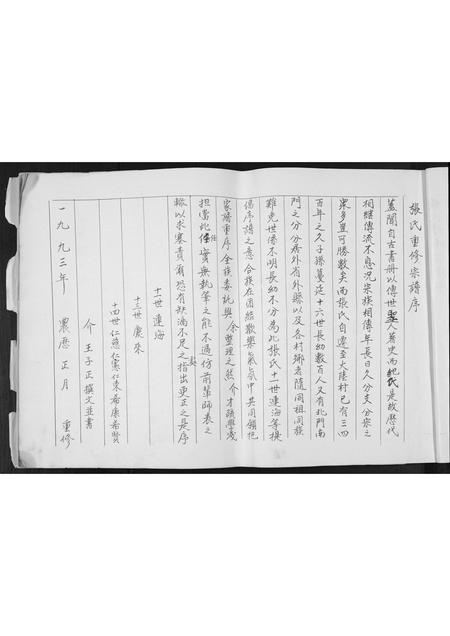 張氏重修宗譜序
蓋聞自古書册以傳世聖人著史而紀氏是故歷代
相継傳流不息况宗族相傳年長日久分支分宗之
衆多豈可勝數矣而張氏自遷至大陸村已有三四
百年之久子孫蔓延十六世長幼數百人又有北門南
門之分分居外省外縣以及各村鄉者隨同祖同族
難免世係不明長幼不分為此張氏十一世連海等提
倡序譜之意合族在團結歡樂氣氛中共同願把
家譜重序全族委託與余整理之然介才疏學淺
担當此任實無執筆之能不過仿前輩師表之
轍以求塞責爾恐有缺漏不足之處指出更正之是序
十一世連海
十三世慶來
十四世仁慈仁憲仁東希康希賢
介王子正撰文並書
一九九三年 農歷正月 重修